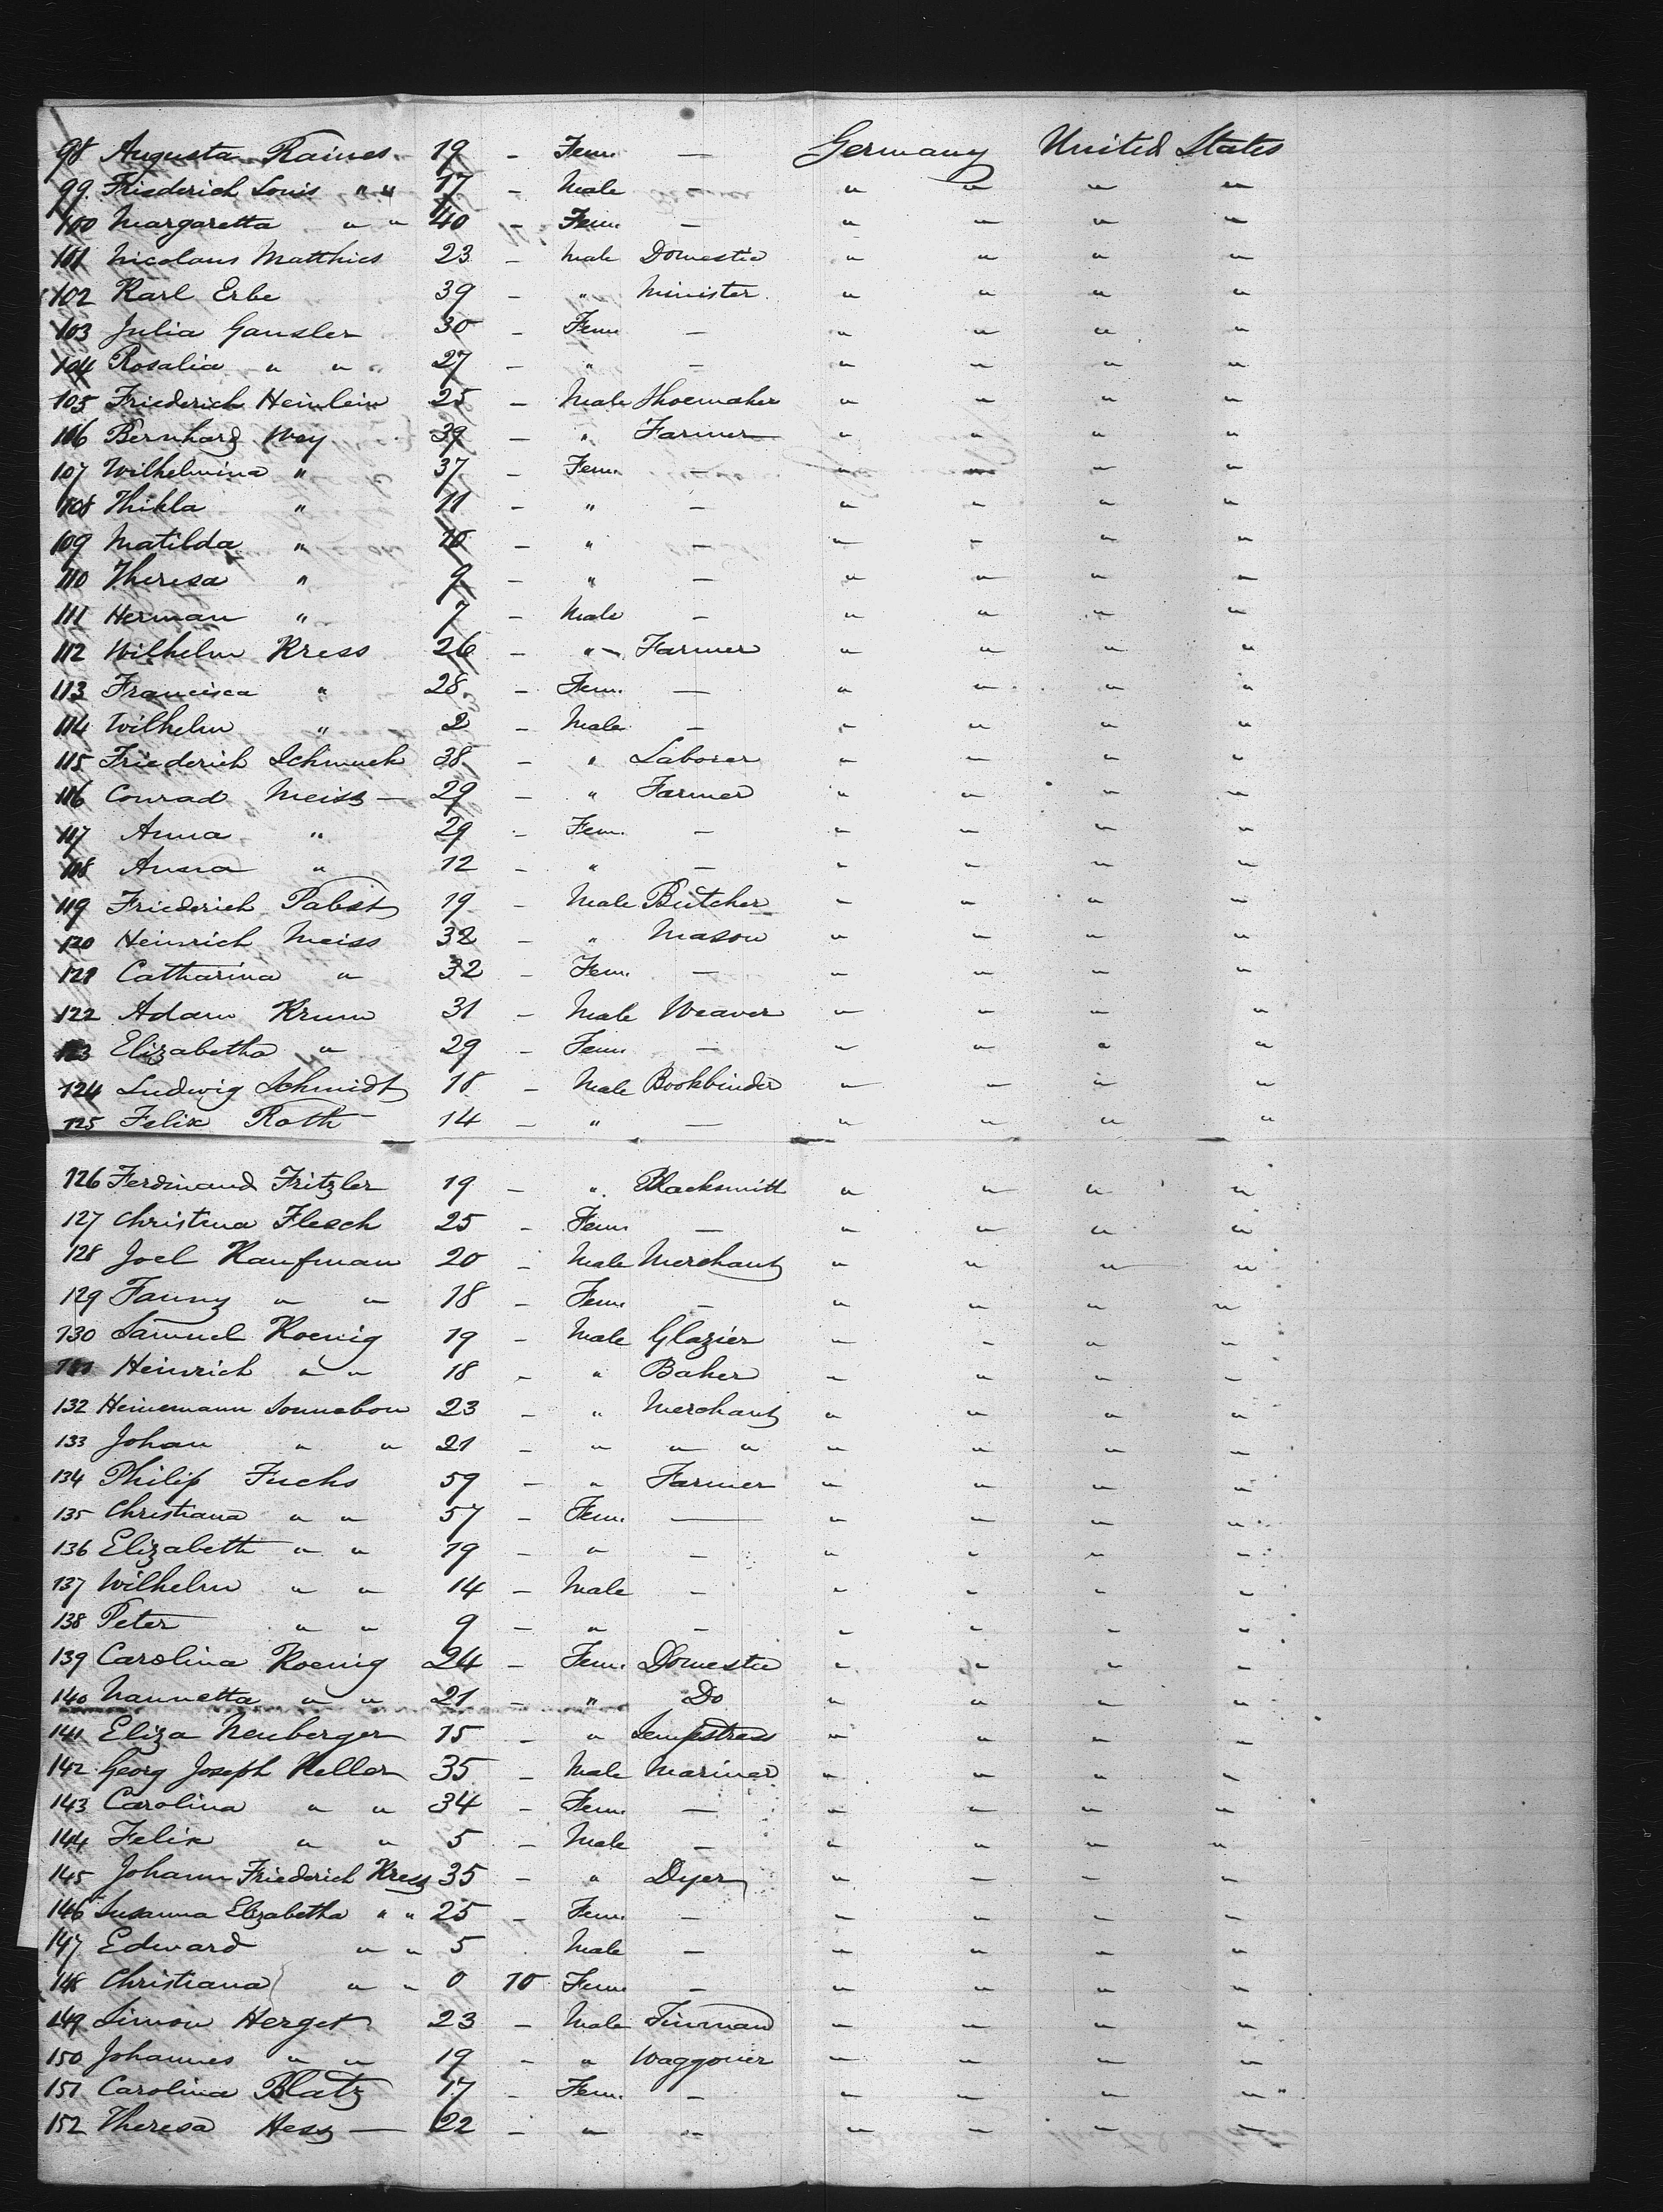 98 Augusta Raines 19 - Fem. — Germany United States
99 Friederich Louis " " 17 - Male - " " " "
100 Margaretta " " 40 - Fem. - " " " "
101 Nicolaus Matthies 23 - Male Domestic " " " "
102 Karl Erbe 39 - " Minister " " " "
103 Julia Gansler 30 - Fem — " " " "
104 Rosalia " " 27 - " - " " " "
105 Friederich Heinlein 25 - Male Shoemaker " " " "
106 Bernhard Wey 39 - " Farmer " " " "
107 Wilhelmina " 37 - Fem. - " " " "
108 Thikla " 11 - " - " " " "
109 Matilda " 10 - " - " " " "
110 Theresa " 9 - " - " " " "
111 Herman " 7 - Male - " " " "
112 Wilhelm Kress 26 - " - Farmer " " " "
113 Francisca " 28 - Fem. — " " " "
114 Wilhelm " 2 - Male - " " " "
115 Friederich Schmuck 38 - " Laborer " " " "
116 Conrad Meiss — 29 - " Farmer " " " "
117 Anna " 29 - Fem. - " " " "
118 Anna " 12 - " - " " " "
119 Friederich Pabst 19 - Male Butcher " " " "
120 Heinrich Meiss 32 - " Mason " " " "
121 Catharina " 32 - Fem. — " " " "
122 Adam Krum 31 - Male Weaver " " " "
123 Elizabetha " 29 - Fem. - " " " "
124 Ludwig Schmidt 18 - Male Bookbinder " " " "
125 Felix Roth 14 - " — " " " "
126 Ferdinand Fritzler 19 - " Blacksmith " " " "
127 Christina Flesch 25 - Fem — " " " "
128 Joel Kaufman 20 - Male Merchant " " " "
129 Fanny " " 18 - Fem. - " " " "
130 Samuel Koenig 19 - Male Glazier " " " "
131 Heinrich " " 18 - " Baker " " " "
132 Heinemann Sonnebon 23 - " Merchant " " " "
133 Johan " " 21 - " " " " " " "
134 Philip Fuchs 59 - " Farmer " " " "
135 Christiana " " 57 - Fem. — " " " "
136 Elizabeth " " 19 - " - " " " "
137 Wilhelm " " 14 - Male - " " " "
138 Peter " " 9 - " - " " " "
139 Carolina Koenig 24 - Fem. Domestic " " " "
140 Nannetta " " 21 - " Do " " " "
141 Eliza Neuberger 15 - " Sempstress " " " "
142 Georg Joseph Keller 35 - Male Mariner " " " "
143 Carolina " " 34 - Fem. — " " " "
144 Felix " " 5 - Male - " " " "
145 Johann Friederich Kress 35 - " Dyer " " " "
146 Susanna Elizabetha " " 25 - Fem. - " " " "
147 Edward " " 5 Male - " " " "
148 Christiana " " 0 10 Fem - " " " "
149 Simon Herget 23 - Male Tinman " " " "
150 Johannes " " 19 - " Waggoner " " " "
151 Carolina Blatz 17 - Fem. - " " " "
152 Theresa Hess — 22 - " - " " " "